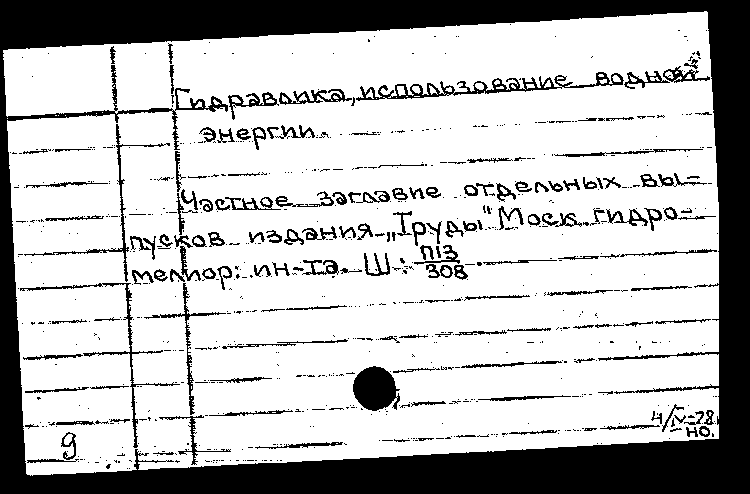 Гидравлика, использование водной
энергии.
Частное заглавие отдельных вы-
пусков издания „Труды" Моск. гидро-
мелиор. ин-та. Ш: П13/308.
4/IV-78
но.
9